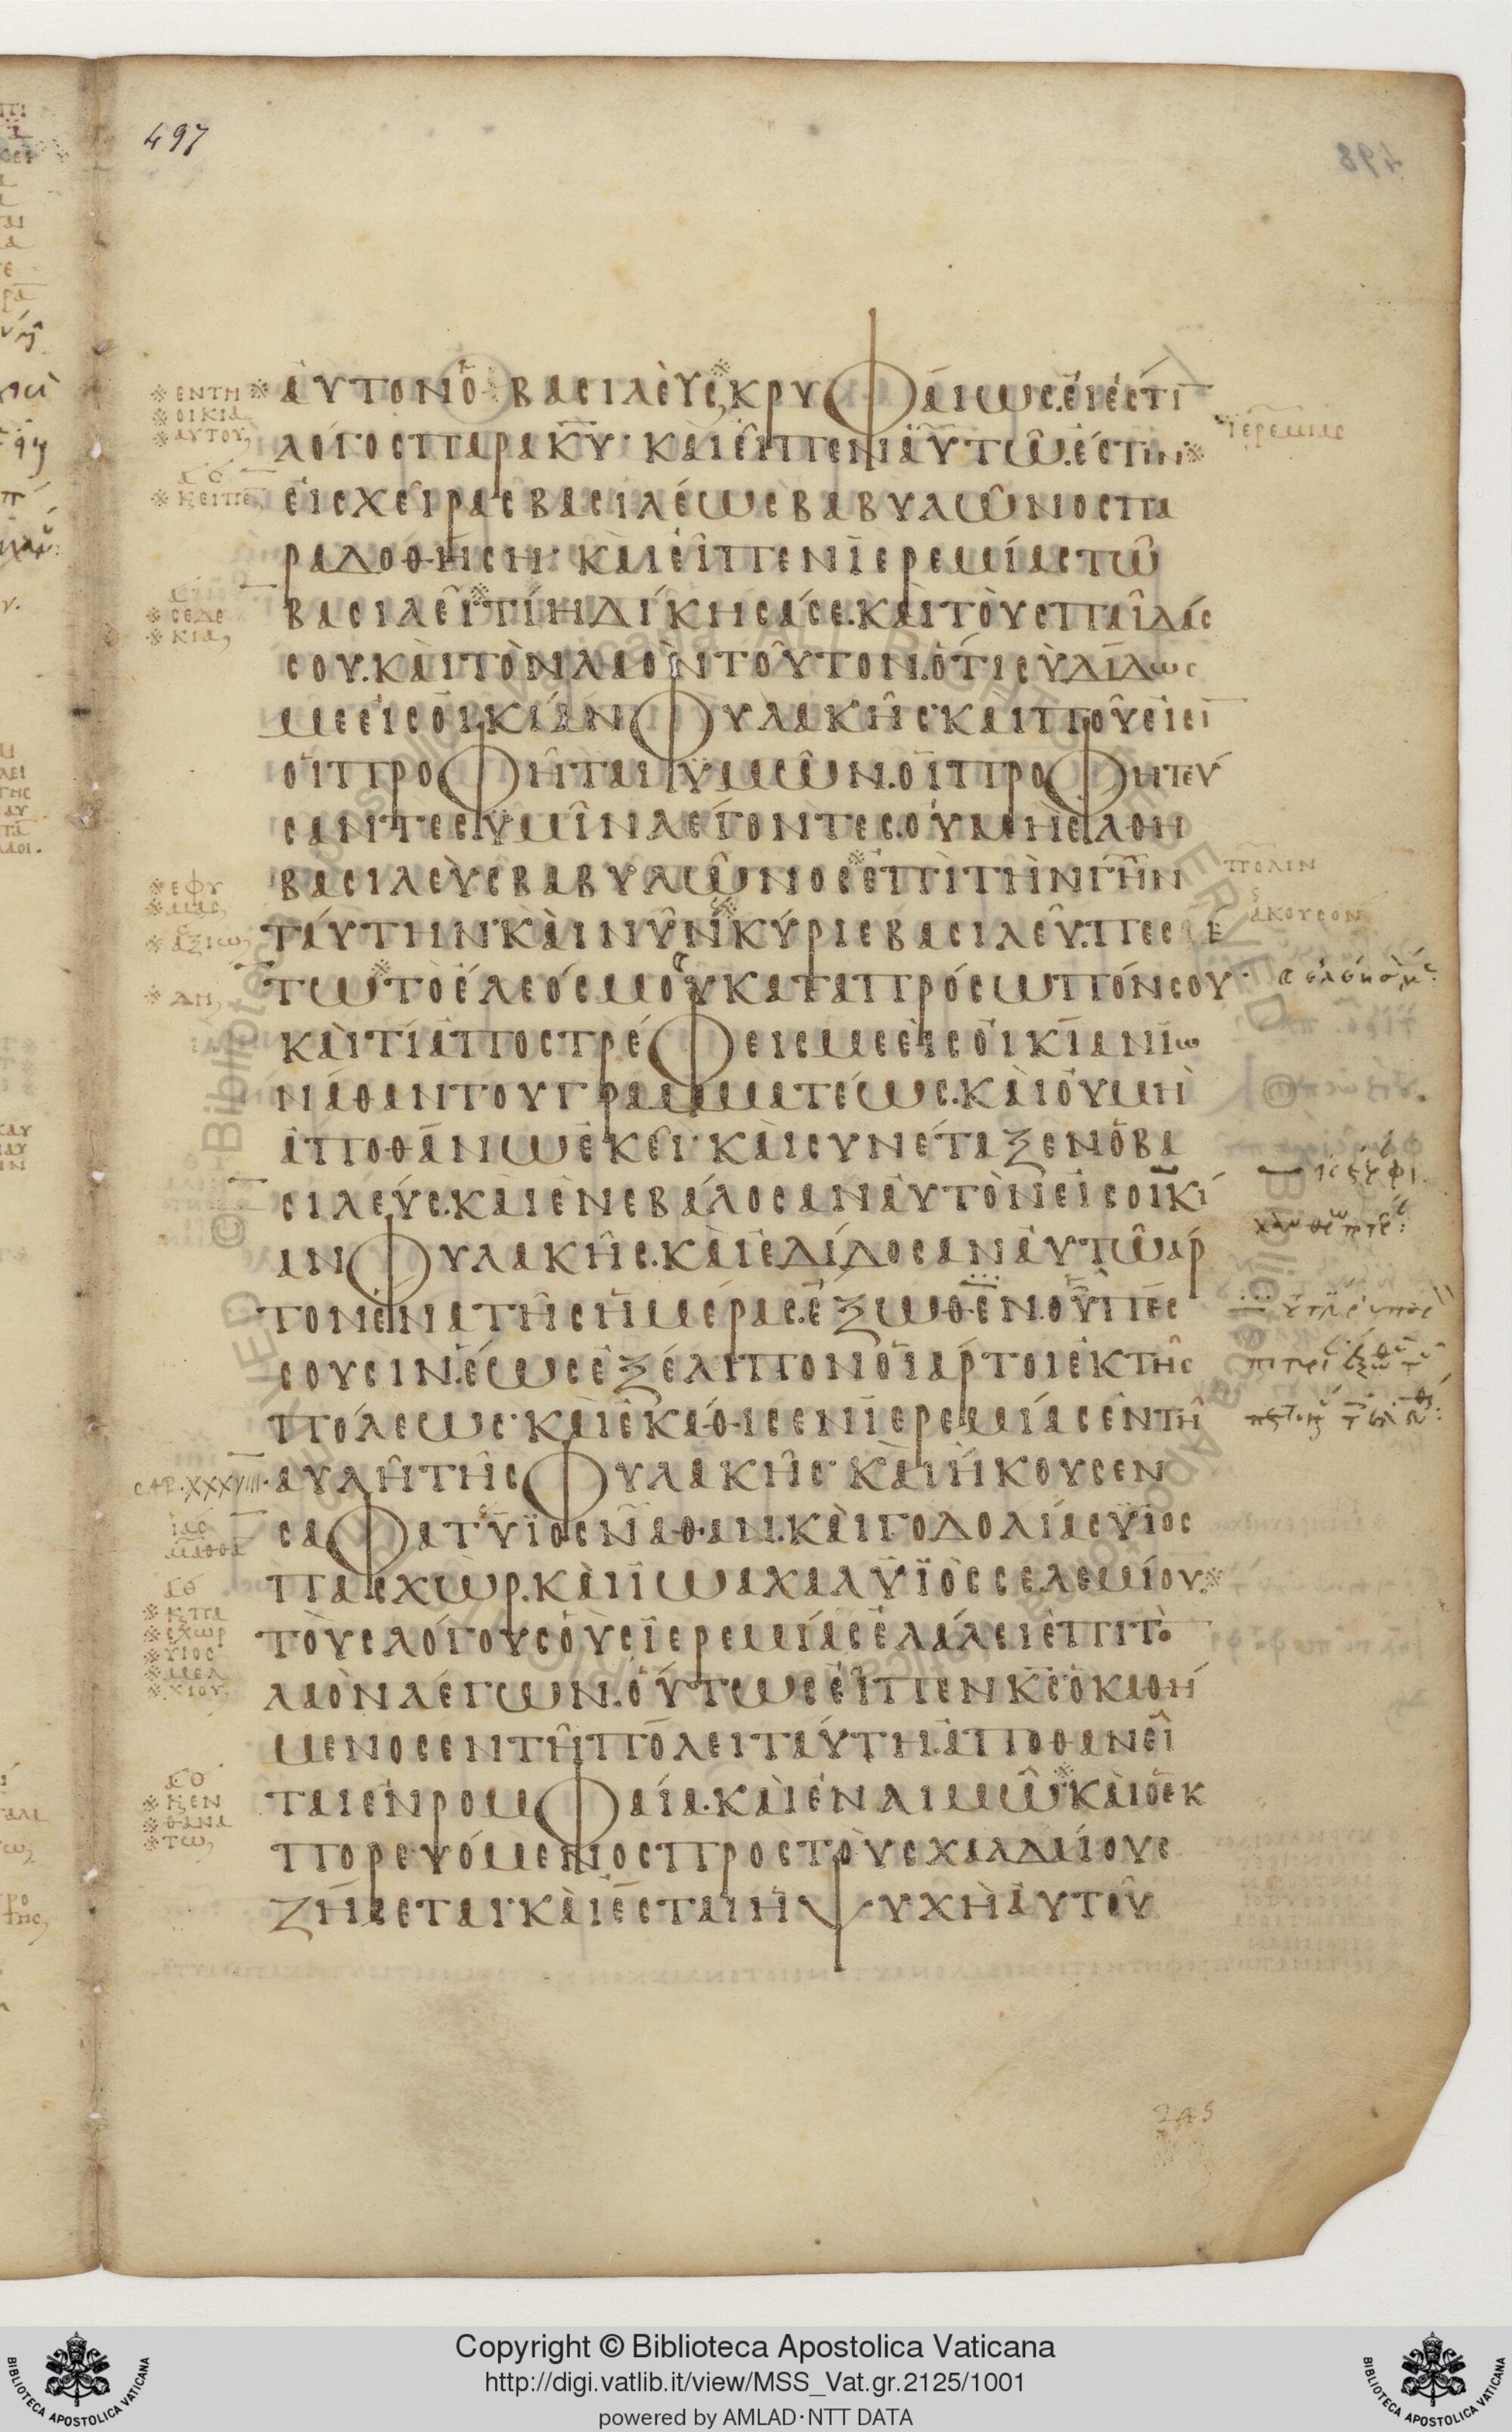 497
498
αυτον ο βασιλευς κρυφαιως. ει εστι
λογος παρα κυ· και ειπεν αυτω. εστιν
εις χειρας βασιλεως βαβυλωνος πα
ραδοθηση· και ειπεν ιερεμιας τω
βασιλει τι ηδικησα σε. και τους παιδας
σου. και τον λαον τουτον. οτι συ διδως
με εις οικιαν φυλακης· και που εισι
οι προφηται υμων. οι προφητευ
σαντες υμιν λεγοντες. ου μη ελθη
βασιλευς βαβυλωνος επι την γην
ταυτην· και νυν κυριε βασιλευ. πεσε
τω το ελεος μου κατα προσωπον σου·
και τι αποστρεφεις με εις οικιαν ιω
ναθαν του γραμματεως. και ου μη
αποθανω εκει· και συνεταξεν ο βα
σιλευς. και ενεβαλοσαν αυτον εις οικι
αν φυλακης. και εδιδοσαν αυτω αρ
τον ενα της ημερας. εξωθεν ου πεσ
σουσιν. εως εξελιπον οι αρτοι εκ της
πολεως· και εκαθισεν ιερεμιας εν τη
αυλη της φυλακης· και ηκουσεν
σαφατ υιος ναθαν. και γοδολιας υιος
πασχωρ. και ιωαχαλ υιος σελεμιου.
τους λογους ους ιερεμιας ελαλει επι το
λαον λεγων. ουτως ειπεν κς ο καθη
μενος εν τη πολει ταυτη. αποθανει
ται εν ρομφαια. και εν λιμω· και ο εκ
πορευομενος προς τους χαλδαιους
ζησεται· και εσται η ψυχη αυτου
※ εν τη
※ οικια
※ αυτου
※ σεδε
※ κια
※ εφ υ
※ μας
※ αξιω
※ δη
CAP. XXXVIII.
※ υιος
※ μελ
※ χιου
※ θανα
※ τω
ιερεμιας
πολιν
ακουσον
245
© Biblioteca Apostolica Vaticana
Copyright © Biblioteca Apostolica Vaticana
http://digi.vatlib.it/view/MSS_Vat.gr.2125/1001
powered by AMLAD·NTT DATA
BIBLIOTECA APOSTOLICA VATICANA
BIBLIOTECA APOSTOLICA VATICANA